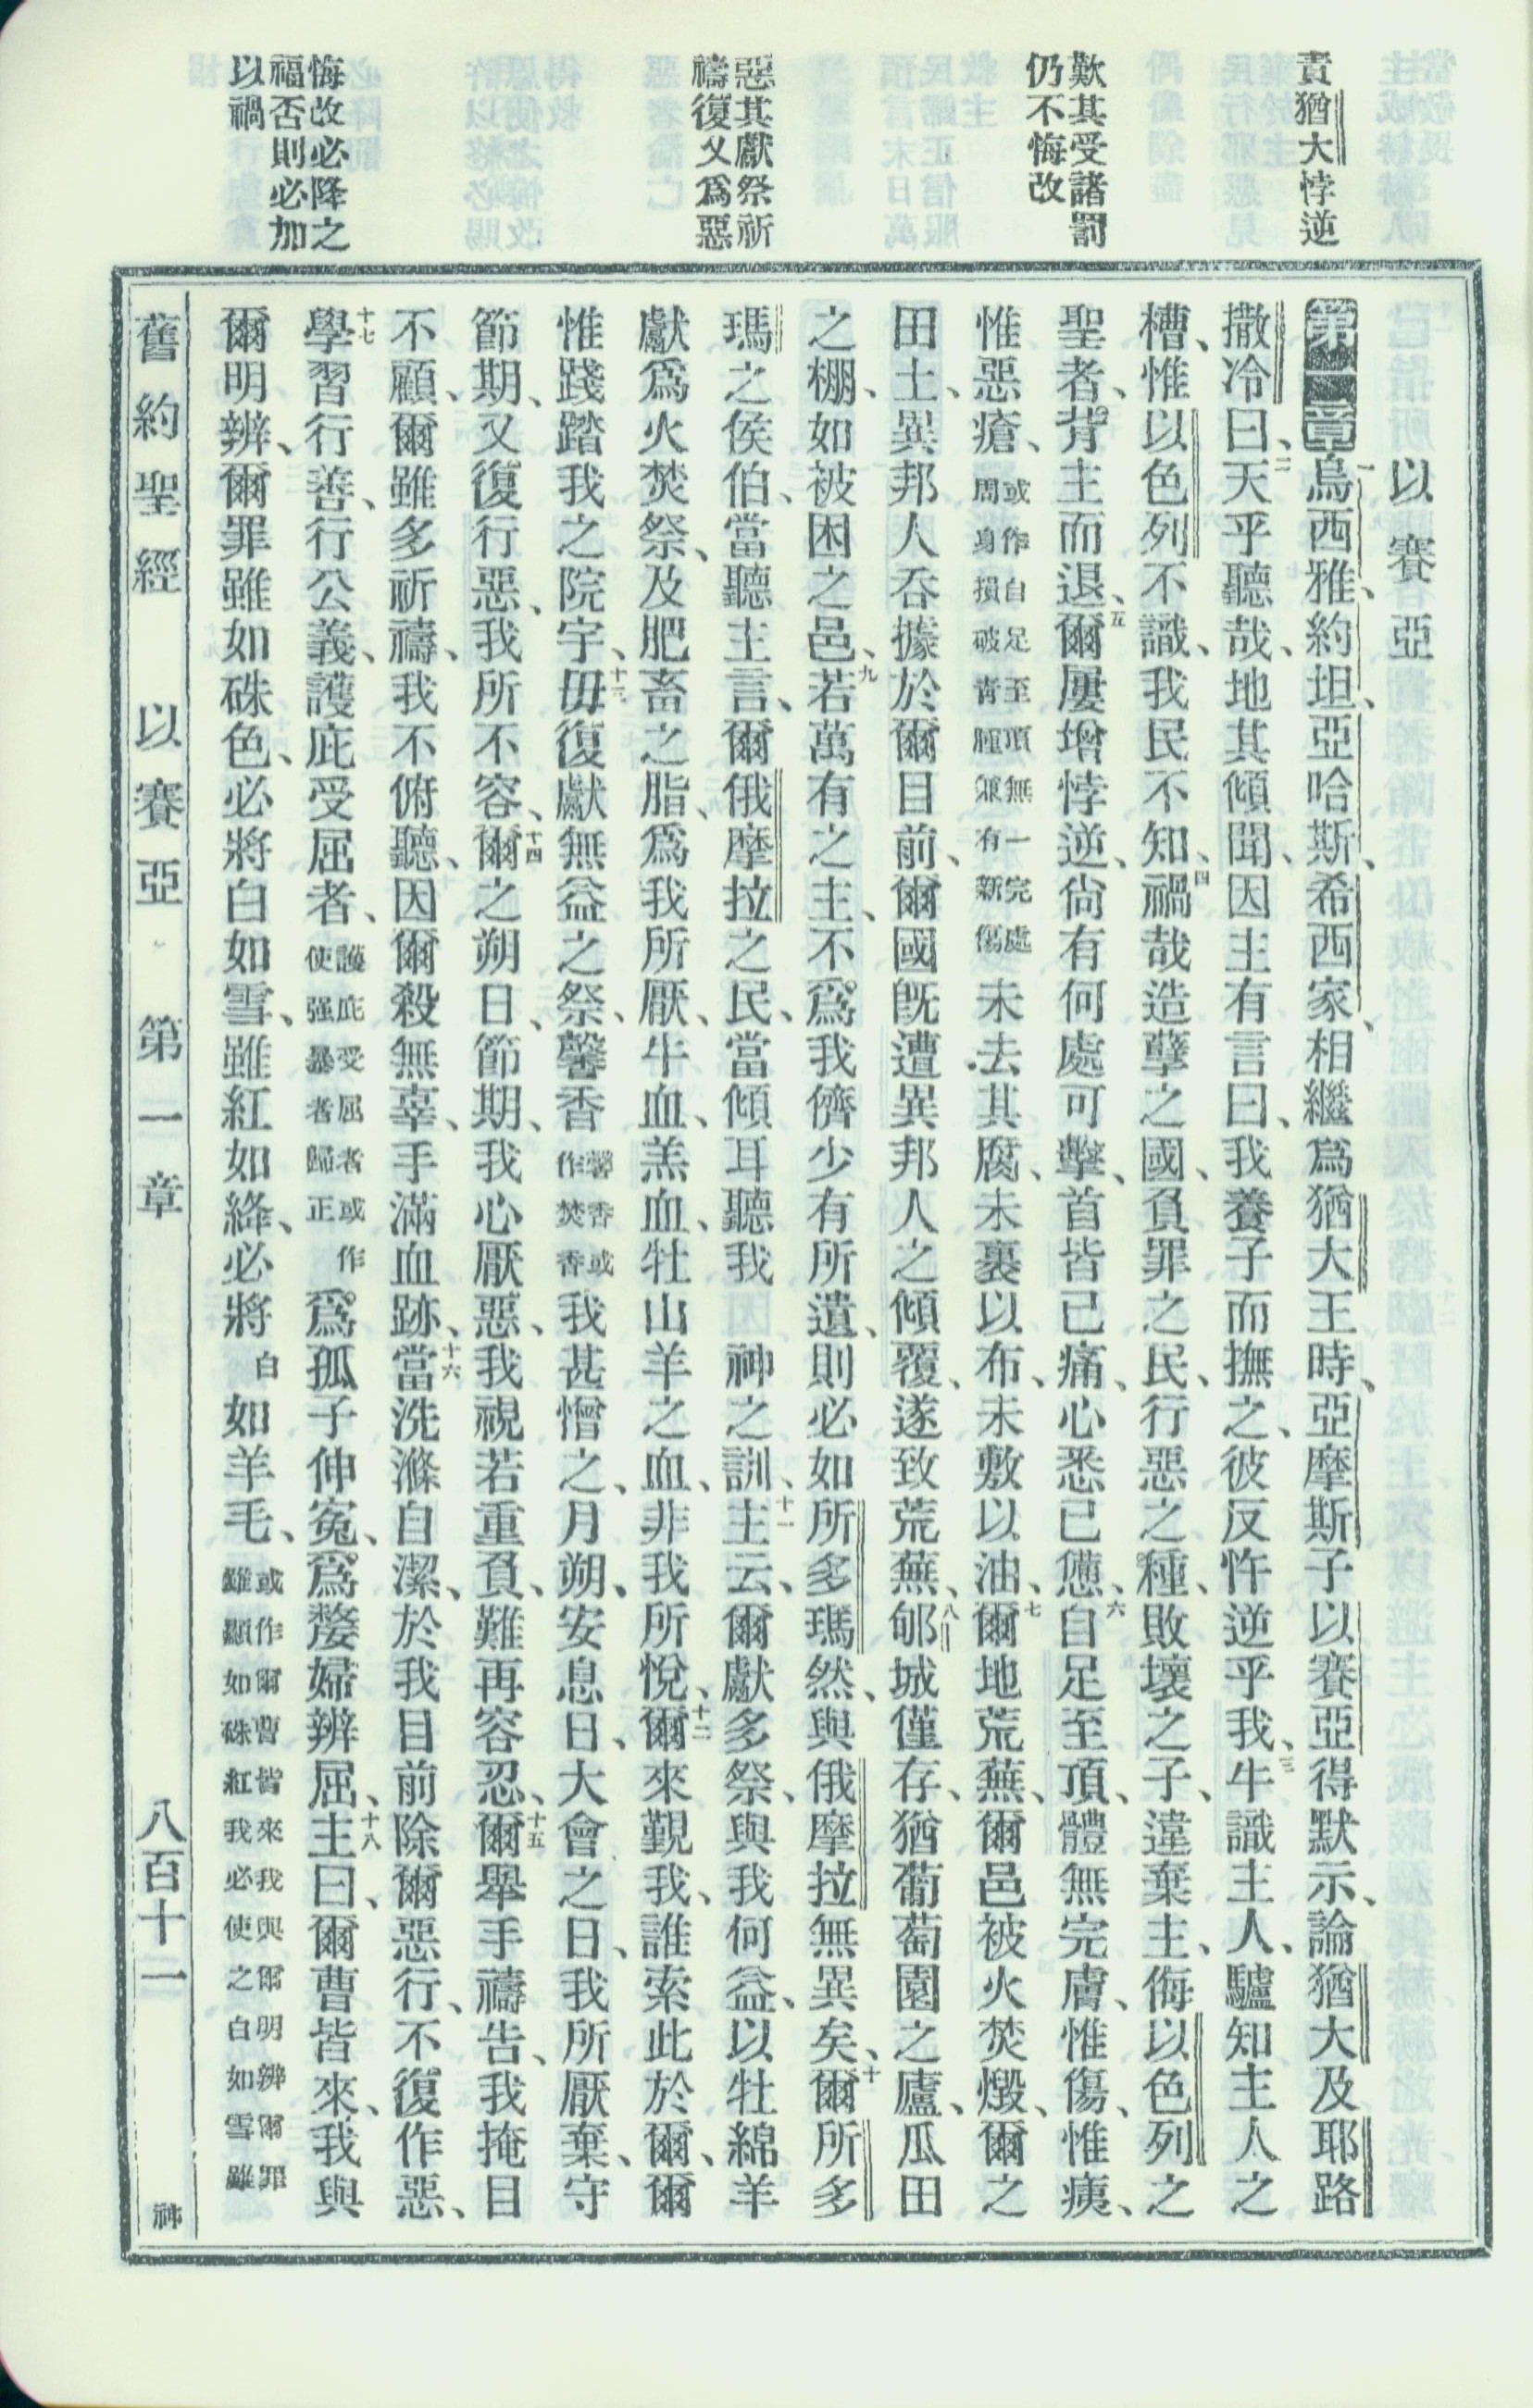 責猶大悖逆
歎其受諸罰
仍不悔改
惡其獻祭祈
禱復又爲惡
悔改必降之
福否則必加
以禍
以賽亞
第一章一烏西雅、約坦、亞哈斯、希西家、相繼爲猶大王時、亞摩斯子以賽亞得默示、論猶大及耶路
撒冷曰、二天乎聽哉、地其傾聞、因主有言曰、我養子而撫之、彼反忤逆乎我、三牛識主人、驢知主人之
槽、惟以色列不識、我民不知、四禍哉造孽之國、負罪之民、行惡之種、敗壞之子、違棄主、侮以色列之
聖者、背主而退、五爾屢增悖逆、尙有何處可擊、首皆已痛、心悉已憊、六自足至頂、體無完膚、惟傷、惟痍、
惟惡瘡、或作自足至頂無一完處周身損破靑腫兼有新傷未去其腐、未裹以布、未敷以油、七爾地荒蕪、爾邑被火焚燬、爾之
田土、異邦人吞據於爾目前、爾國旣遭異邦人之傾覆、遂致荒蕪、八郇城僅存、猶葡萄園之廬、瓜田
之棚、如被困之邑、九若萬有之主、不爲我儕少有所遺、則必如所多瑪然、與俄摩拉無異矣、十爾所多
瑪之侯伯、當聽主言、爾俄摩拉之民、當傾耳聽我神之訓、十一主云、爾獻多祭、與我何益、以牡綿羊
獻爲火焚祭、及肥畜之脂、爲我所厭、牛血、羔血、牡山羊之血、非我所悅、十二爾來覲我、誰索此於爾、爾
惟踐踏我之院宇、十三毋復獻無益之祭、馨香馨香或作焚香我甚憎之、月朔、安息日、大會之日、我所厭棄、守
節期、又復行惡、我所不容、十四爾之朔日、節期、我心厭惡、我視若重負、難再容忍、十五爾舉手禱告、我掩目
不顧、爾雖多祈禱、我不俯聽、因爾殺無辜、手滿血跡、十六當洗滌自潔、於我目前除爾惡行、不復作惡、
十七學習行善、行公義、護庇受屈者、護庇受屈者或作使强暴者歸正爲孤子伸寃、爲嫠婦辨屈、十八主曰、爾曹皆來、我與
爾明辨、爾罪雖如硃色、必將白如雪、雖紅如絳、必將白如羊毛、或作爾曹皆來我與爾明辨爾罪雖顯如硃紅我必使之白如雪雖
舊約聖經 以賽亞 第一章 八百十一